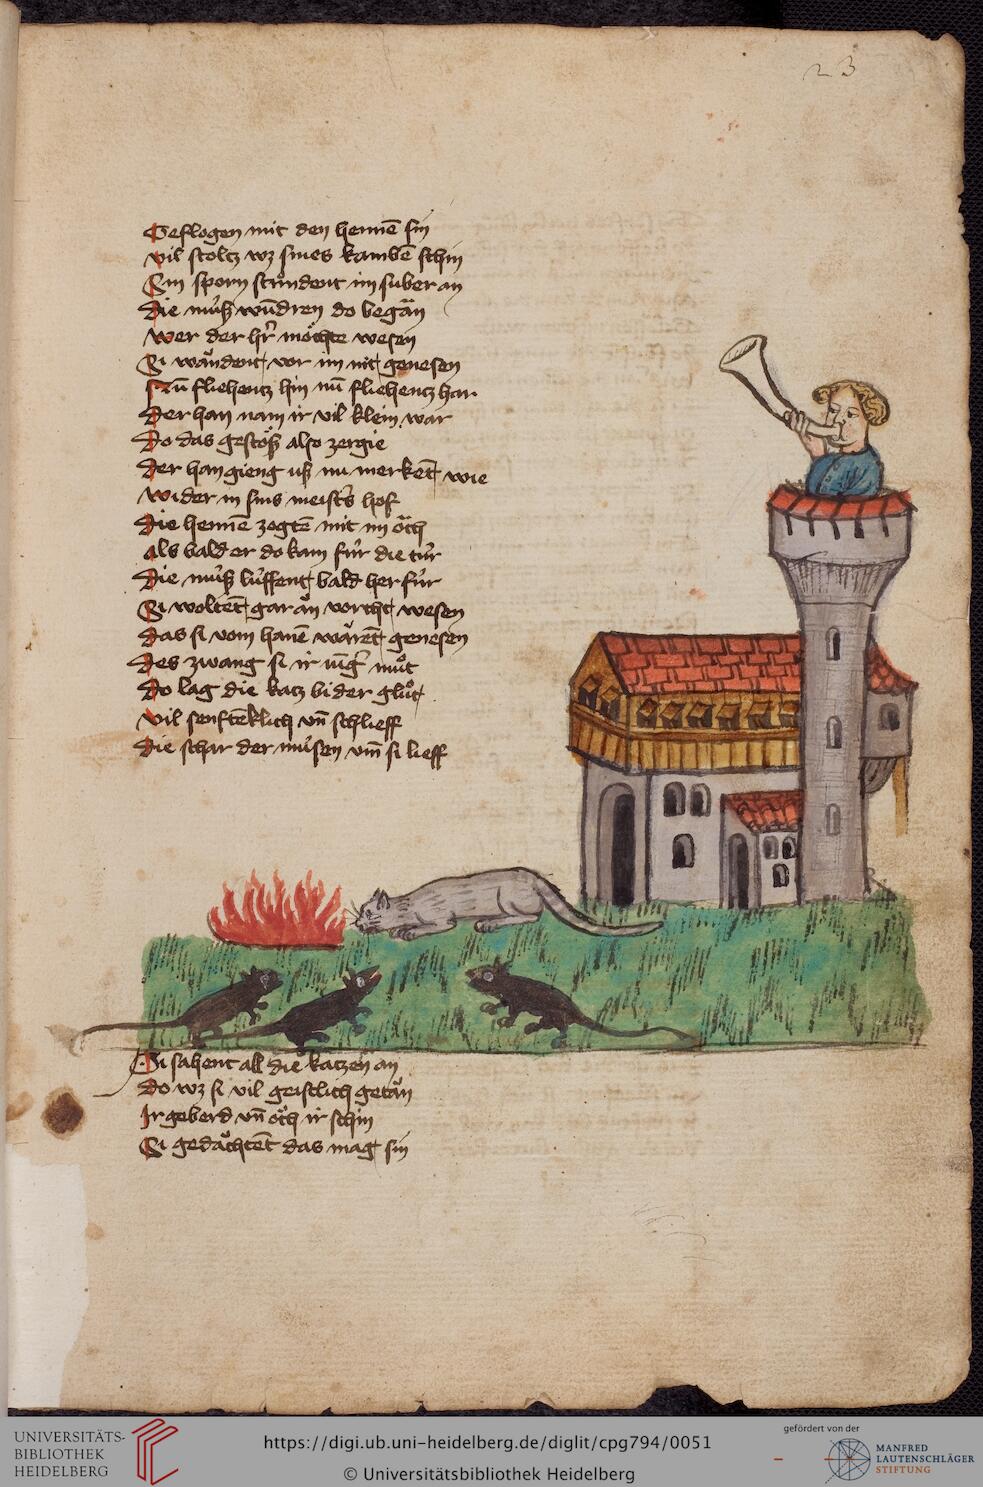 23
Geflogen mit den hennē sin
vil stoltz wz sines kambē schin
Sin sporn stůndent im suber an
die mu̍ß wūdren do began
wer der hr̄ möchte wesen
Si wandent vor im nit genesen
Nū fliehentz hin nū fliehentz har
der han nam ir vil klein war
do das gestöß also zergie
der han gieng uß nu merkent wie
wider in sins meist's hof
die hennē zogtē mit im öch
als bald er do kam fu̍r die tu̍r
die mu̍ß lu̍ffent bald her fu̍r
Si woltēt gar än vorcht wesen
das si vom hanē wärēt genesen
des zwang si ir iūg' můt
do lag die katz bi der glůt
vil senfteklich vn̄ schlieff
die schar der mu̍sen vm̄ si lieff
Si sahent all die katzen an
do wz si vil geistlich getän
Ir geberd vn̄ öch ir schin
Si gedächtēt das mag sin
UNIVERSITÄTS-
BIBLIOTHEK
HEIDELBERG
https://digi.ub.uni-heidelberg.de/diglit/cpg794/0051
© Universitätsbibliothek Heidelberg
gefördert von der
MANFRED
LAUTENSCHLÄGER
STIFTUNG